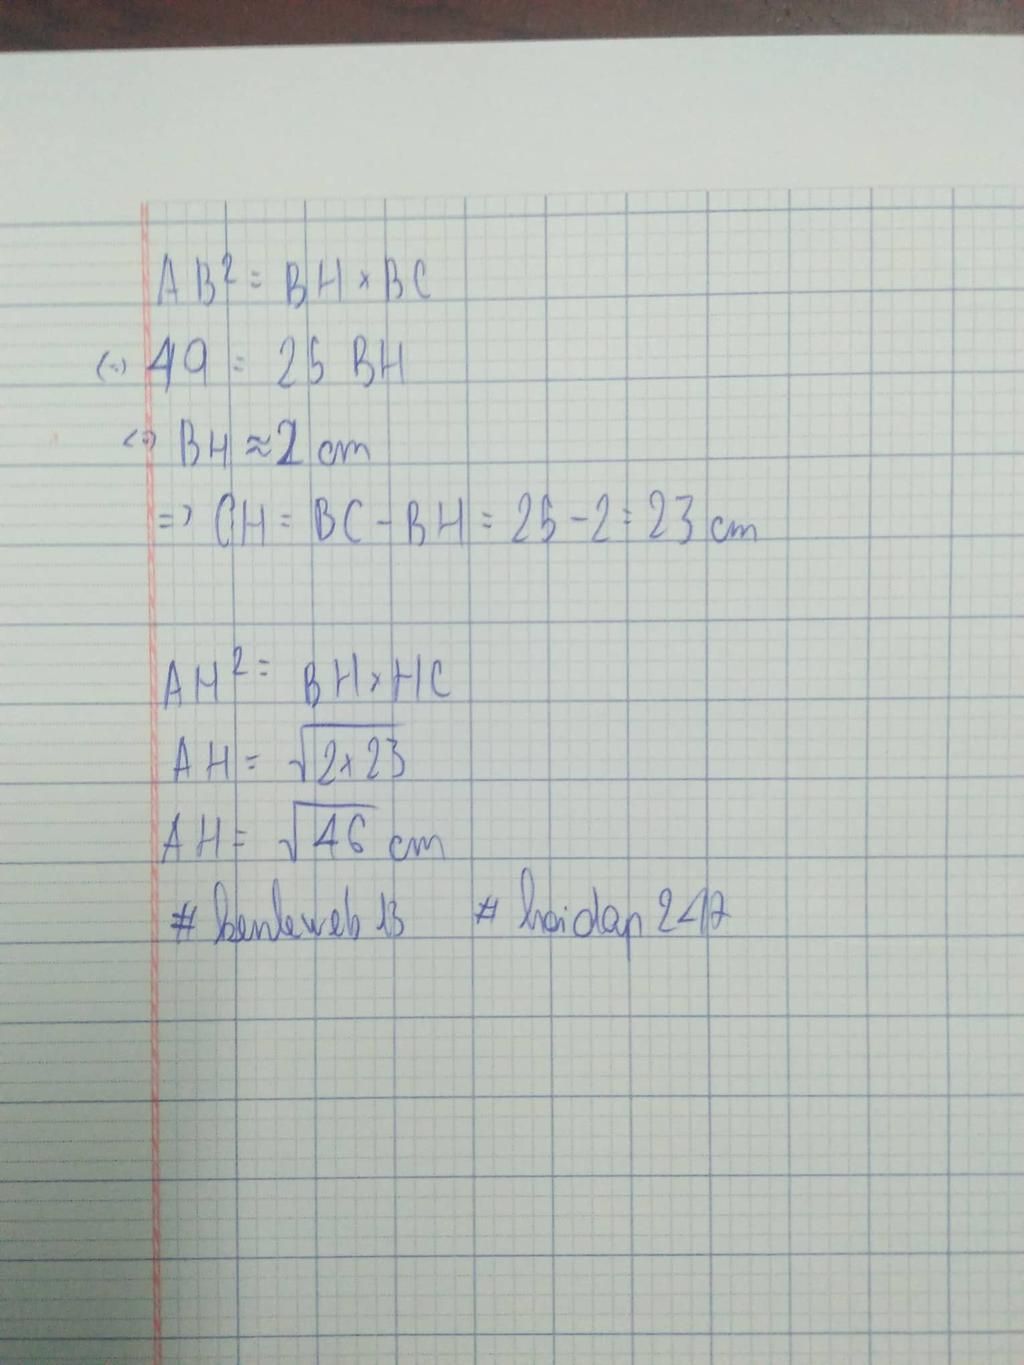 AB² = BH × BC
<=> 49 = 25 BH
<=> BH ≈ 2 cm
=> CH = BC - BH = 25 - 2 = 23 cm
AH² = BH × HC
AH = √2×23
AH = √46 cm
# # hoidap 247